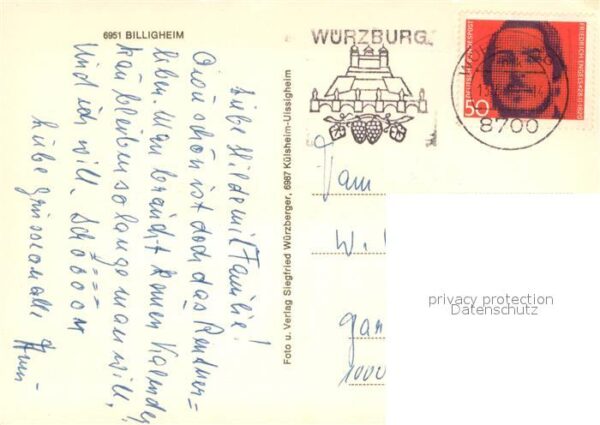 6951 BILLIGHEIM
Liebe Hilde mit Familie!
O wie schön ist doch das Rentner=
leben. Man braucht keinen Kalender
kann bleiben so lange man will.
Und ich will. Schoooon
Liebe Grüsse an alle Anni
Foto u. Verlag Siegfried Würzberger, 6987 Külsheim-Uissigheim
WÜRZBURG
8700
DEUTSCHE BUNDESPOST
FRIEDRICH ENGELS 1820
50
Fam
W.
1000
privacy protection
Datenschutz